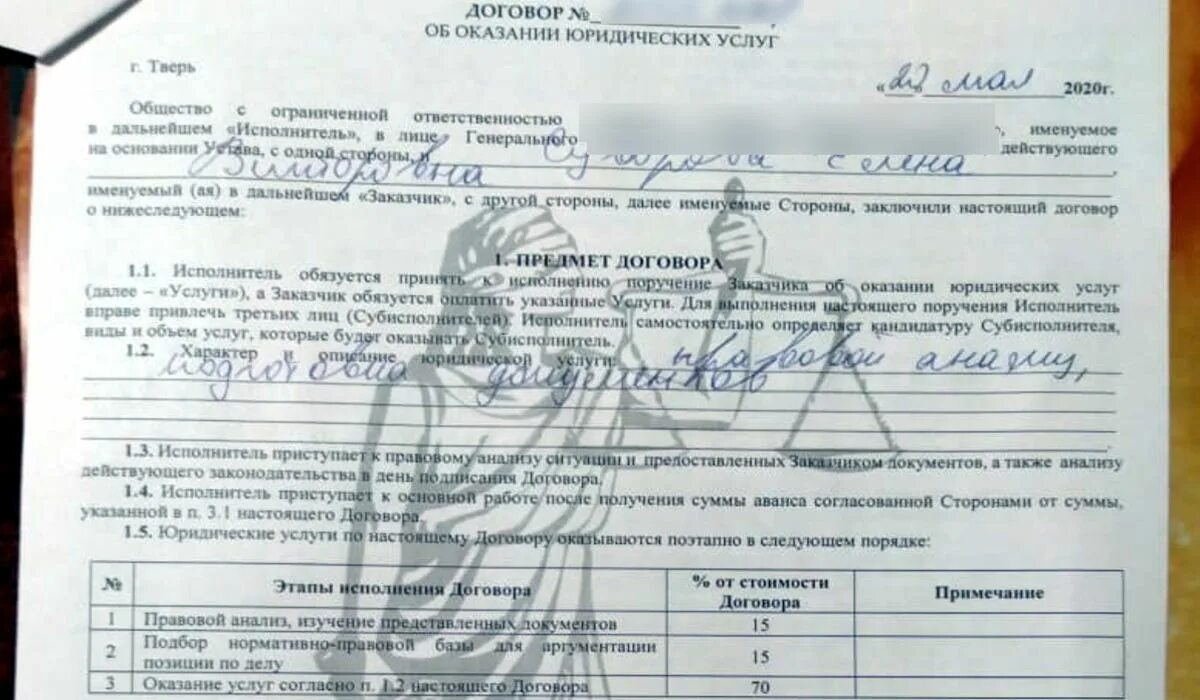 ДОГОВОР №
ОБ ОКАЗАНИИ ЮРИДИЧЕСКИХ УСЛУГ
г. Тверь
«22 мая 2020г.
Общество с ограниченной ответственностью
в дальнейшем «Исполнитель», в лице Генерального , именуемое
на основании Устава, с одной стороны, и Елена действующего
Викторовна
именуемый (ая) в дальнейшем «Заказчик», с другой стороны, далее именуемые Стороны, заключили настоящий договор
о нижеследующем:
1. ПРЕДМЕТ ДОГОВОРА
1.1. Исполнитель обязуется принять к исполнению поручение Заказчика об оказании юридических услуг
(далее – «Услуги»), а Заказчик обязуется оплатить указанные Услуги. Для выполнения настоящего поручения Исполнитель
вправе привлечь третьих лиц (Субисполнителей) Исполнитель самостоятельно определяет кандидатуру Субисполнителя,
виды и объем услуг, которые будет оказывать Субисполнитель.
1.2. Характер и описание юридической услуги: правовой анализ,
подготовка документов
1.3. Исполнитель приступает к правовому анализу ситуации и предоставленных Заказчиком документов, а также анализу
действующего законодательства в день подписания Договора.
1.4. Исполнитель приступает к основной работе после получения суммы аванса согласованной Сторонами от суммы,
указанной в п. 3.1 настоящего Договора.
1.5. Юридические услуги по настоящему Договору оказываются поэтапно в следующем порядке:
№ Этапы исполнения Договора % от стоимости Примечание
Договора
1 Правовой анализ, изучение представленных документов 15
2 Подбор нормативно-правовой базы для аргументации 15
позиции по делу
3 Оказание услуг согласно п. 1.2 настоящего Договора 70